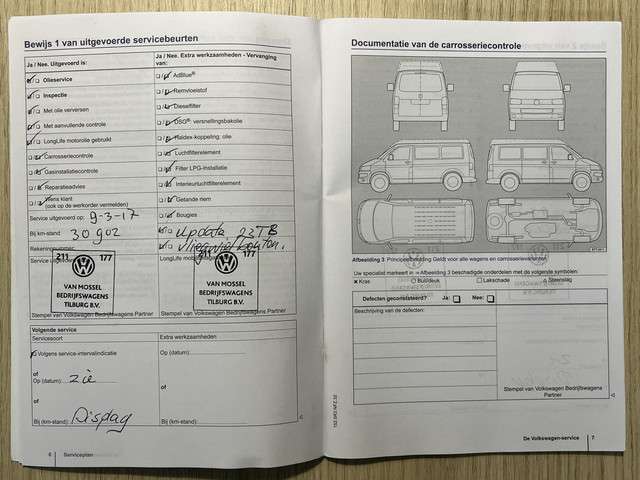 Bewijs 1 van uitgevoerde servicebeurten
Ja / Nee. Uitgevoerd is:
Ja / Nee. Extra werkzaamheden - Vervanging van:
Olieservice
AdBlue®
Inspectie
Remvloeistof
Met olie verversen
Dieselfilter
Met aanvullende controle
DSG®: versnellingsbakolie
LongLife motorolie gebruikt
Haldex-koppeling: olie
Carrosseriecontrole
Luchtfilterelement
Gasinstallatiecontrole
Filter LPG-installatie
Reparatieadvies
Interieurluchtfilterelement
Wens klant
(ook op de werkorder vermelden)
Getande riem
Service uitgevoerd op: 9-3-17
Bougies
Bij km-stand: 30902
update 23TB
Rekeningnummer:
vliegwiel bouten.
211 177
VAN MOSSEL
BEDRIJFSWAGENS
TILBURG B.V.
211 177
VAN MOSSEL
BEDRIJFSWAGENS
TILBURG B.V.
Stempel van Volkswagen Bedrijfswagens Partner
Stempel van Volkswagen Bedrijfswagens Partner
Volgende service
Servicesoort
Extra werkzaamheden
Volgens service-intervalindicatie
Op (datum):
of
of
Op (datum): zie
of
of
Bij (km-stand): Display
Bij (km-stand):
6 Serviceplan
Documentatie van de carrosseriecontrole
Afbeelding 3 Principeafbeelding: Geldt voor alle wagens en carrosserievarianten.
Uw specialist markeert in ⇒ Afbeelding 3 beschadigde onderdelen met de volgende symbolen:
× Kras
○ Buil/deuk
□ Lakschade
△ Steenslag
Defecten gecorrigeerd? Ja: Nee:
Beschrijving van de defecten:
Stempel van Volkswagen Bedrijfswagens
Partner
De Volkswagen-service 7